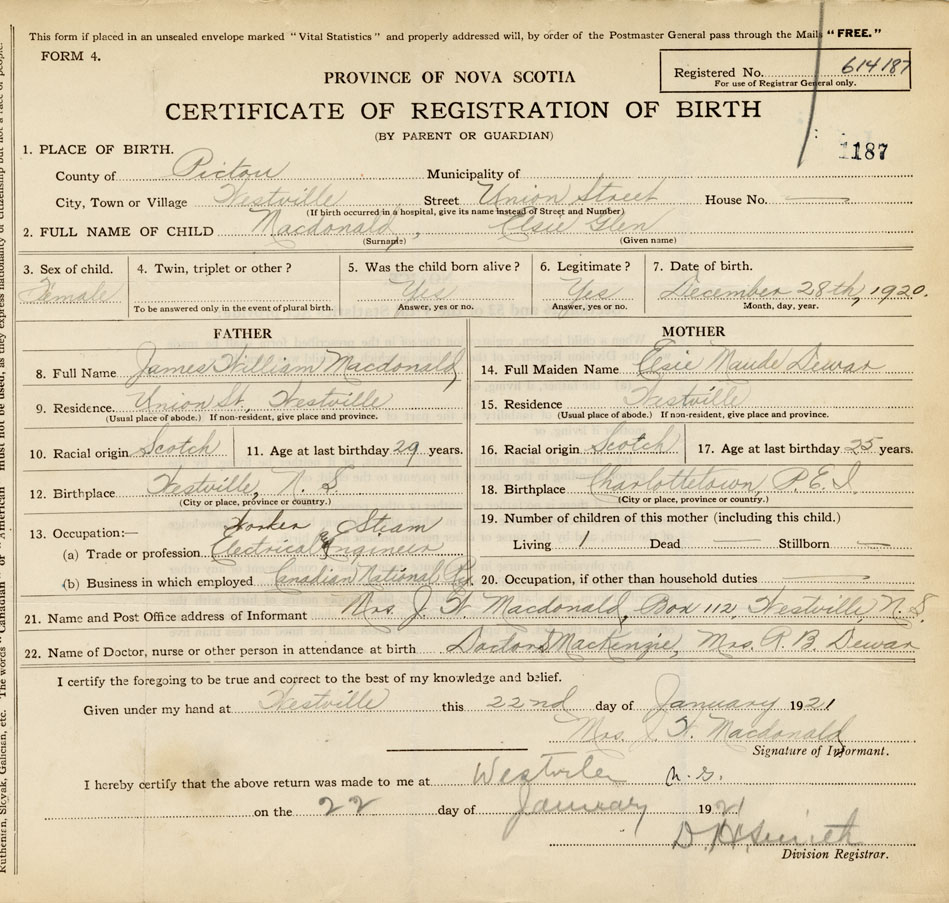 This form if placed in an unsealed envelope marked "Vital Statistics" and properly addressed will, by order of the Postmaster General pass through the Mails "FREE."
FORM 4.
PROVINCE OF NOVA SCOTIA
Registered No. 614187
For use of Registrar General only.
CERTIFICATE OF REGISTRATION OF BIRTH
(BY PARENT OR GUARDIAN)
1187
1. PLACE OF BIRTH.
County of Pictou Municipality of
City, Town or Village Westville Street Union Street House No. —
(If birth occurred in a hospital, give its name instead of Street and Number)
2. FULL NAME OF CHILD Macdonald, Elsie Glen
(Surname) (Given name)
3. Sex of child. 4. Twin, triplet or other? 5. Was the child born alive? 6. Legitimate? 7. Date of birth.
Female Yes Yes December 28th, 1920.
To be answered only in the event of plural birth. Answer, yes or no. Answer, yes or no. Month, day, year.
FATHER
8. Full Name James William Macdonald
9. Residence. Union St, Westville
(Usual place of abode.) If non-resident, give place and province.
10. Racial origin Scotch 11. Age at last birthday 29 years.
12. Birthplace Westville, N. S
(City or place, province or country.)
13. Occupation:— Worker & Steam
(a) Trade or profession Electrical Engineer
(b) Business in which employed Canadian National Ry.
MOTHER
14. Full Maiden Name Elsie Maude Dewar
15. Residence Westville
(Usual place of abode.) If non-resident, give place and province.
16. Racial origin Scotch 17. Age at last birthday 25 years.
18. Birthplace Charlottetown, P. E. I.
(City or place, province or country.)
19. Number of children of this mother (including this child.)
Living 1 Dead — Stillborn —
20. Occupation, if other than household duties —
21. Name and Post Office address of Informant Mrs. J. W. Macdonald, Box 112, Westville, N. S.
22. Name of Doctor, nurse or other person in attendance at birth Doctor MacKenzie, Mrs. R. B. Dewar
I certify the foregoing to be true and correct to the best of my knowledge and belief.
Given under my hand at Westville this 22nd day of January 1921
Mrs. J. W. Macdonald
Signature of Informant.
I hereby certify that the above return was made to me at Westville N. S.
on the 22 day of January 1921
D. H. Smith
Division Registrar.
Ruthenian, Slovak, Galician, etc. The words "Canadian" or "American" must not be used, as they express nationality or citizenship but not a race or people.